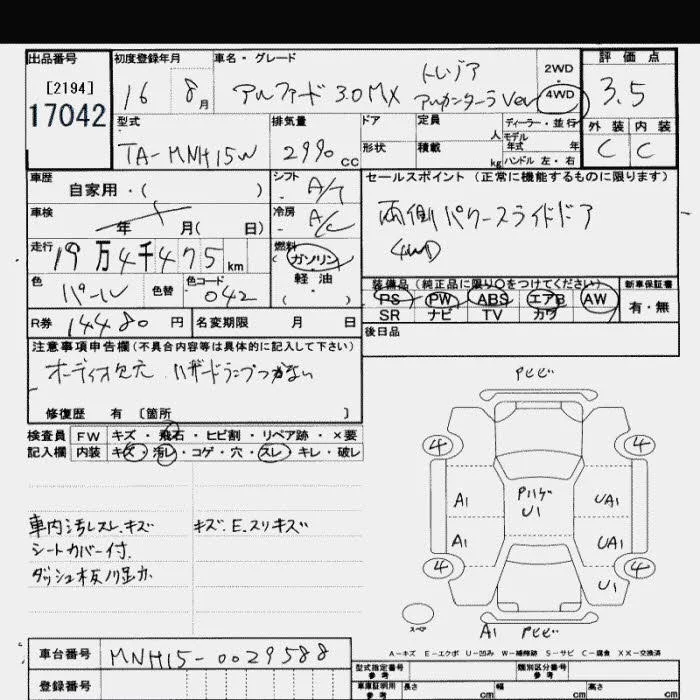 出品番号
[2194]
17042
初度登録年月
16 8月
車名・グレード
アルファード 3.0MX
トレゾア
アルカンターラ Ver
2WD
4WD
評価点
3.5
外装 内装
C C
型式
TA-MNH15W
排気量
2990cc
ドア
形状
定員
人
積載
kg
ディーラー・並行
モデル
年式 年
ハンドル 左・右
車歴
自家用・( )
シフト
A/T
車検
年 月( 日)
冷房
A/C
走行
19万4千475km
燃料
( ガソリン
軽油
・
( )
色
パール
色替
色コード
042
R券
14480円
名変期限 月 日
セールスポイント(正常に機能するものに限ります)
両側パワースライドドア
4WD
装備品(純正品に限り○をつけてください)
PS PW ABS エアB AW
SR ナビ TV カワ
新車保証書
有・無
後日品
注意事項申告欄(不具合内容等は具体的に記入して下さい)
オーディオ欠品 ハザードランプつかない
修復歴 有 [箇所 ]
検査員
記入欄
FW キズ・飛石・ヒビ割・リペア跡・×要
内装 キズ・汚レ・コゲ・穴・スレ・キレ・破レ
車内汚レスレ.キズ
シートカバー付.
キズ.E.スリキズ
Pヒビ
4 4
A1
Pハゲ
U1
UA1
A1
UA1
4 4
U1
スペア
A1 Pヒビ
A−キズ E−エクボ U−凹み W−補修跡 S−サビ C−腐食 XX−交換済
車台番号
MNH15-0029588
登録番号
型式指定番号
参考
類別区分番号
参考
車庫証明用
参考
長さ cm
幅 cm
高さ cm